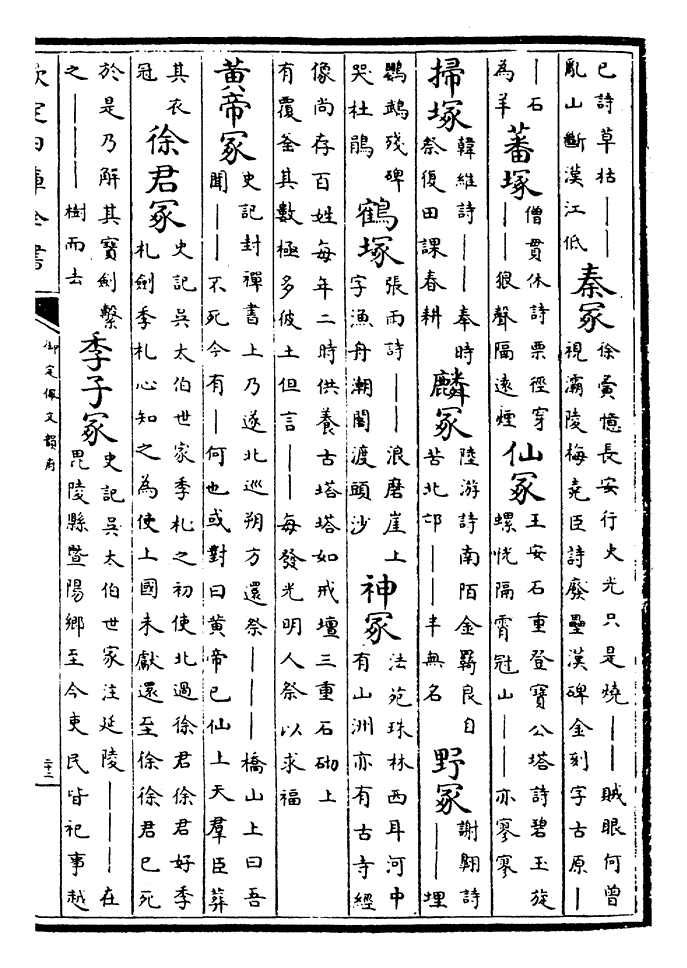 已詩草枯——
亂山斷漢江低
秦冢
徐夤憶長安行火光只是燒——賊眼何曾
視灞陵梅堯臣詩廢壘漢碑金刻字古原—
—石
為羊
蕃塚
僧貫休詩票徑穿
——狼聲隔遠煙
仙冢
王安石重登寶公塔詩碧玉旋
螺恍隔霄冠山——亦寥寥
掃塚
韓維詩——奉時
祭復田課春耕
麟冢
陸游詩南陌金羈良日
苦北邙——半無名
野冢
謝翱詩
——埋
鸚鵡殘碑
哭杜鵑
鶴塚
張雨詩——浪磨崖上
字漁舟潮閣渡頭沙
神冢
法苑珠林西耳河中
有山洲亦有古寺經
像尚存百姓每年二時供養古塔塔如戒壇三重石砌上
有覆釜其數極多彼土但言——每發光明人祭以求福
黃帝冢
史記封禪書上乃遂北巡朔方還祭———橋山上曰吾
聞——不死今有—何也或對曰黃帝已仙上天羣臣葬
其衣
冠
徐君冢
史記吳太伯世家季札之初使北過徐君徐君好季
札劍季札心知之為使上國未獻還至徐徐君已死
於是乃解其寶劍繫
之———樹而去
季子冢
史記吳太伯世家注延陵———在
毘陵縣暨陽鄉至今吏民皆祀事越
欽定四庫全書
御定佩文韻府
二十二